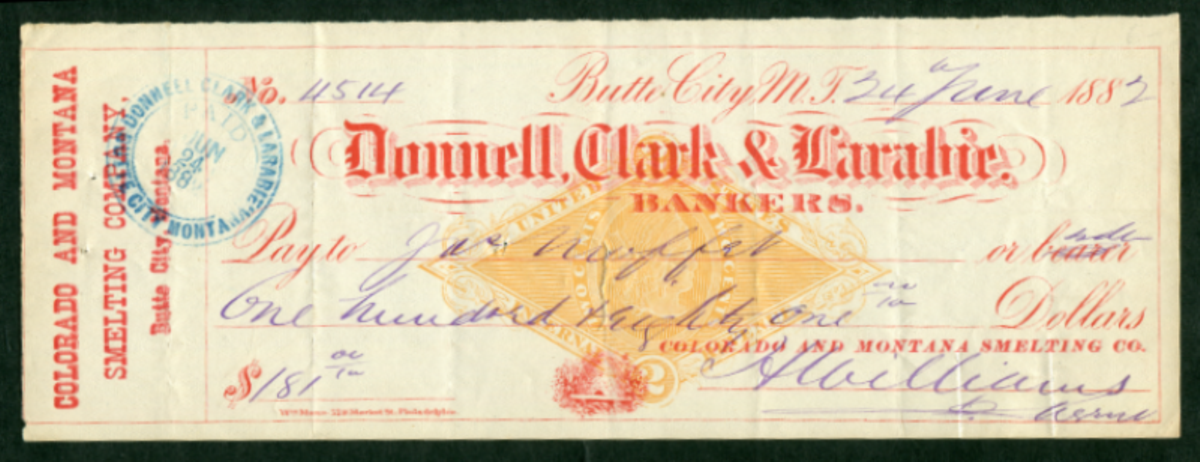 COLORADO AND MONTANA
SMELTING COMPANY,
Butte City, Montana.
DONNELL CLARK & LARABIE
PAID
JUN
24
BUTTE CITY MONTANA
No. 4514 Butte City, M.T. 24th June 1882
Donnell, Clark & Larabie.
BANKERS.
Pay to Jas. Moffet or bearer order
One hundred & eighty one no/100 Dollars
COLORADO AND MONTANA SMELTING CO.
$181 00/100
HWilliams
Wm Mann 529 Market St. Philadelphia
2